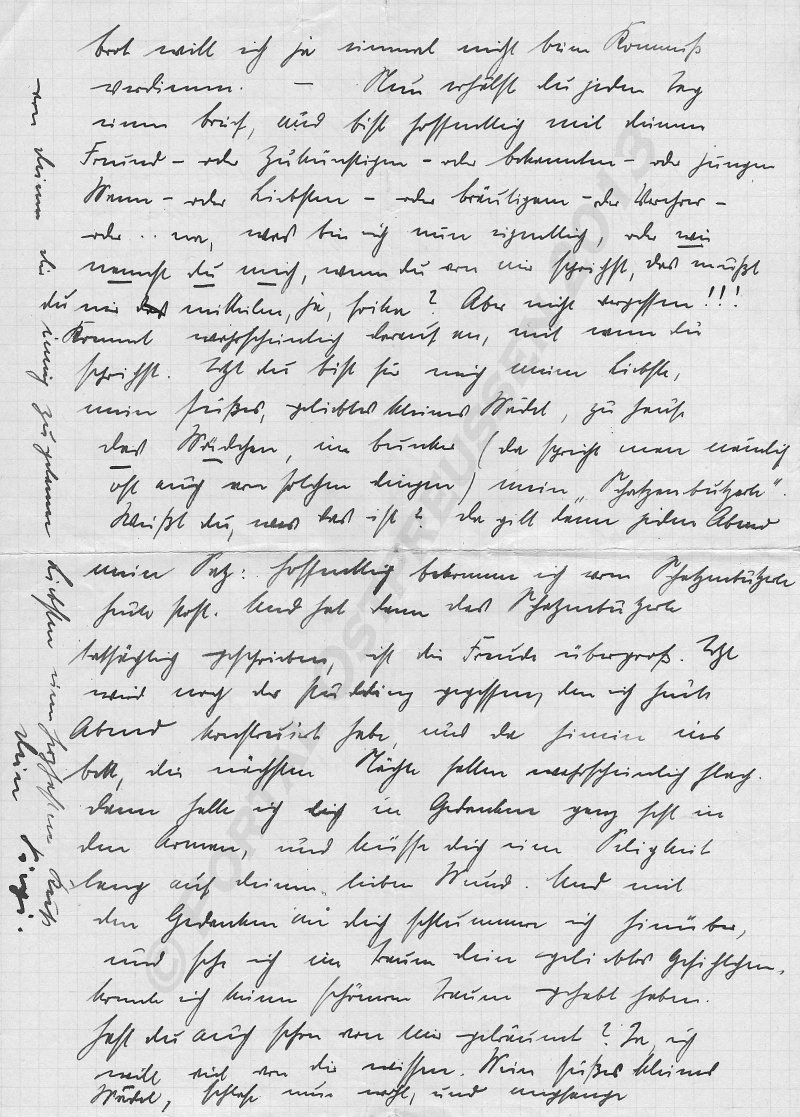 brot will ich ja einmal nicht beim Kommiß
verdienen. — Nun erhälst du jeden Tag
einen brief, und bist hoffentlich mit deinem
Freund – oder Zukünftigen – oder bekannten – oder jungen
Mann – oder Liebsten – oder bräutigam – oder Verehrer –
oder .. na, was bin ich nun eigentlich, oder wie
nennst du mich, wenn du von mir sprichst, das mußt
du mir mitteilen, ja, Erika? Aber nicht vergessen!!!
Kommt wahrscheinlich darauf an, mit wem du
sprichst. Jetzt du bist für mich meine Liebste,
mein süßes, geliebtes kleines Mädel, zu hause
das Mädchen, im bunker (da spricht man nämlich
oft auch von solchen dingen) mein „Schatzenbutzerle".
Weißt du, was das ist? da gilt dann jeden Abend
mein Satz: hoffentlich bekomme ich vom Schatzenbutzerle
heute Post. Und hat dann das Schatzenbutzerle
tatsächlich geschrieben, ist die Freude übergroß. Jetzt
wird noch der Pudding gegessen, den ich heute
Abend konstruiert habe, und da hinein ins
bett, die nächsten Nächte fallen wahrscheinlich flach.
dann halte ich dich in Gedanken ganz fest in
den Armen, und küsse dich eine Seligkeit
lang auf deinen lieben Mund. Und mit
den Gedanken an dich schlummere ich hinüber,
und sehe ich im Traum dein geliebtes Gesichtchen,
konnte ich keinen schöneren Traum gehabt haben.
hast du auch schon von mir geträumt? Ja, ich
will viel von dir wissen. Mein süßes kleines
Mädel, schlafe nun wohl, und empfange
von deinem dir innig zugetanen Liebsten einen herzhaften Kuß
dein
© PORTAL OSTPREUSSEN 2013